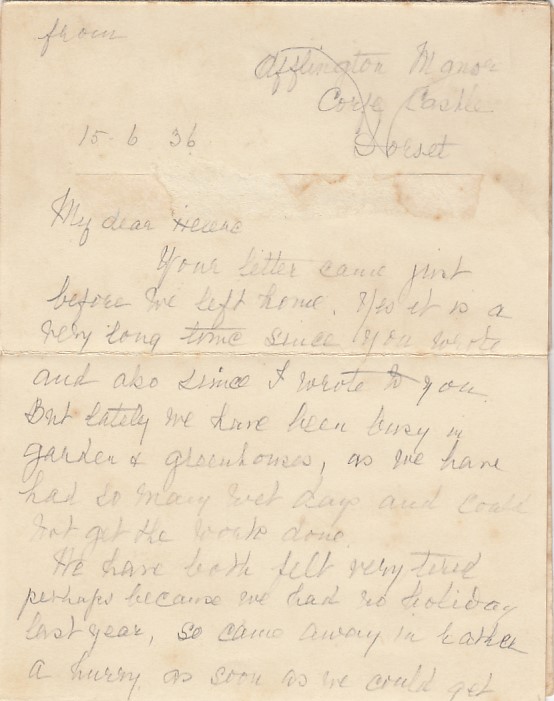 from
Afflington Manor
Corfe Castle
Dorset
15. 6 36
My dear Helene
Your letter came just
before we left home. Yes it is a
very long time since you wrote
and also since I wrote to you.
But lately we have been busy in
garden & greenhouses, as we have
had so many wet days and could
not get the work done
We have both felt very tired
perhaps because we had no holiday
last year, so came away in rather
a hurry as soon as we could get